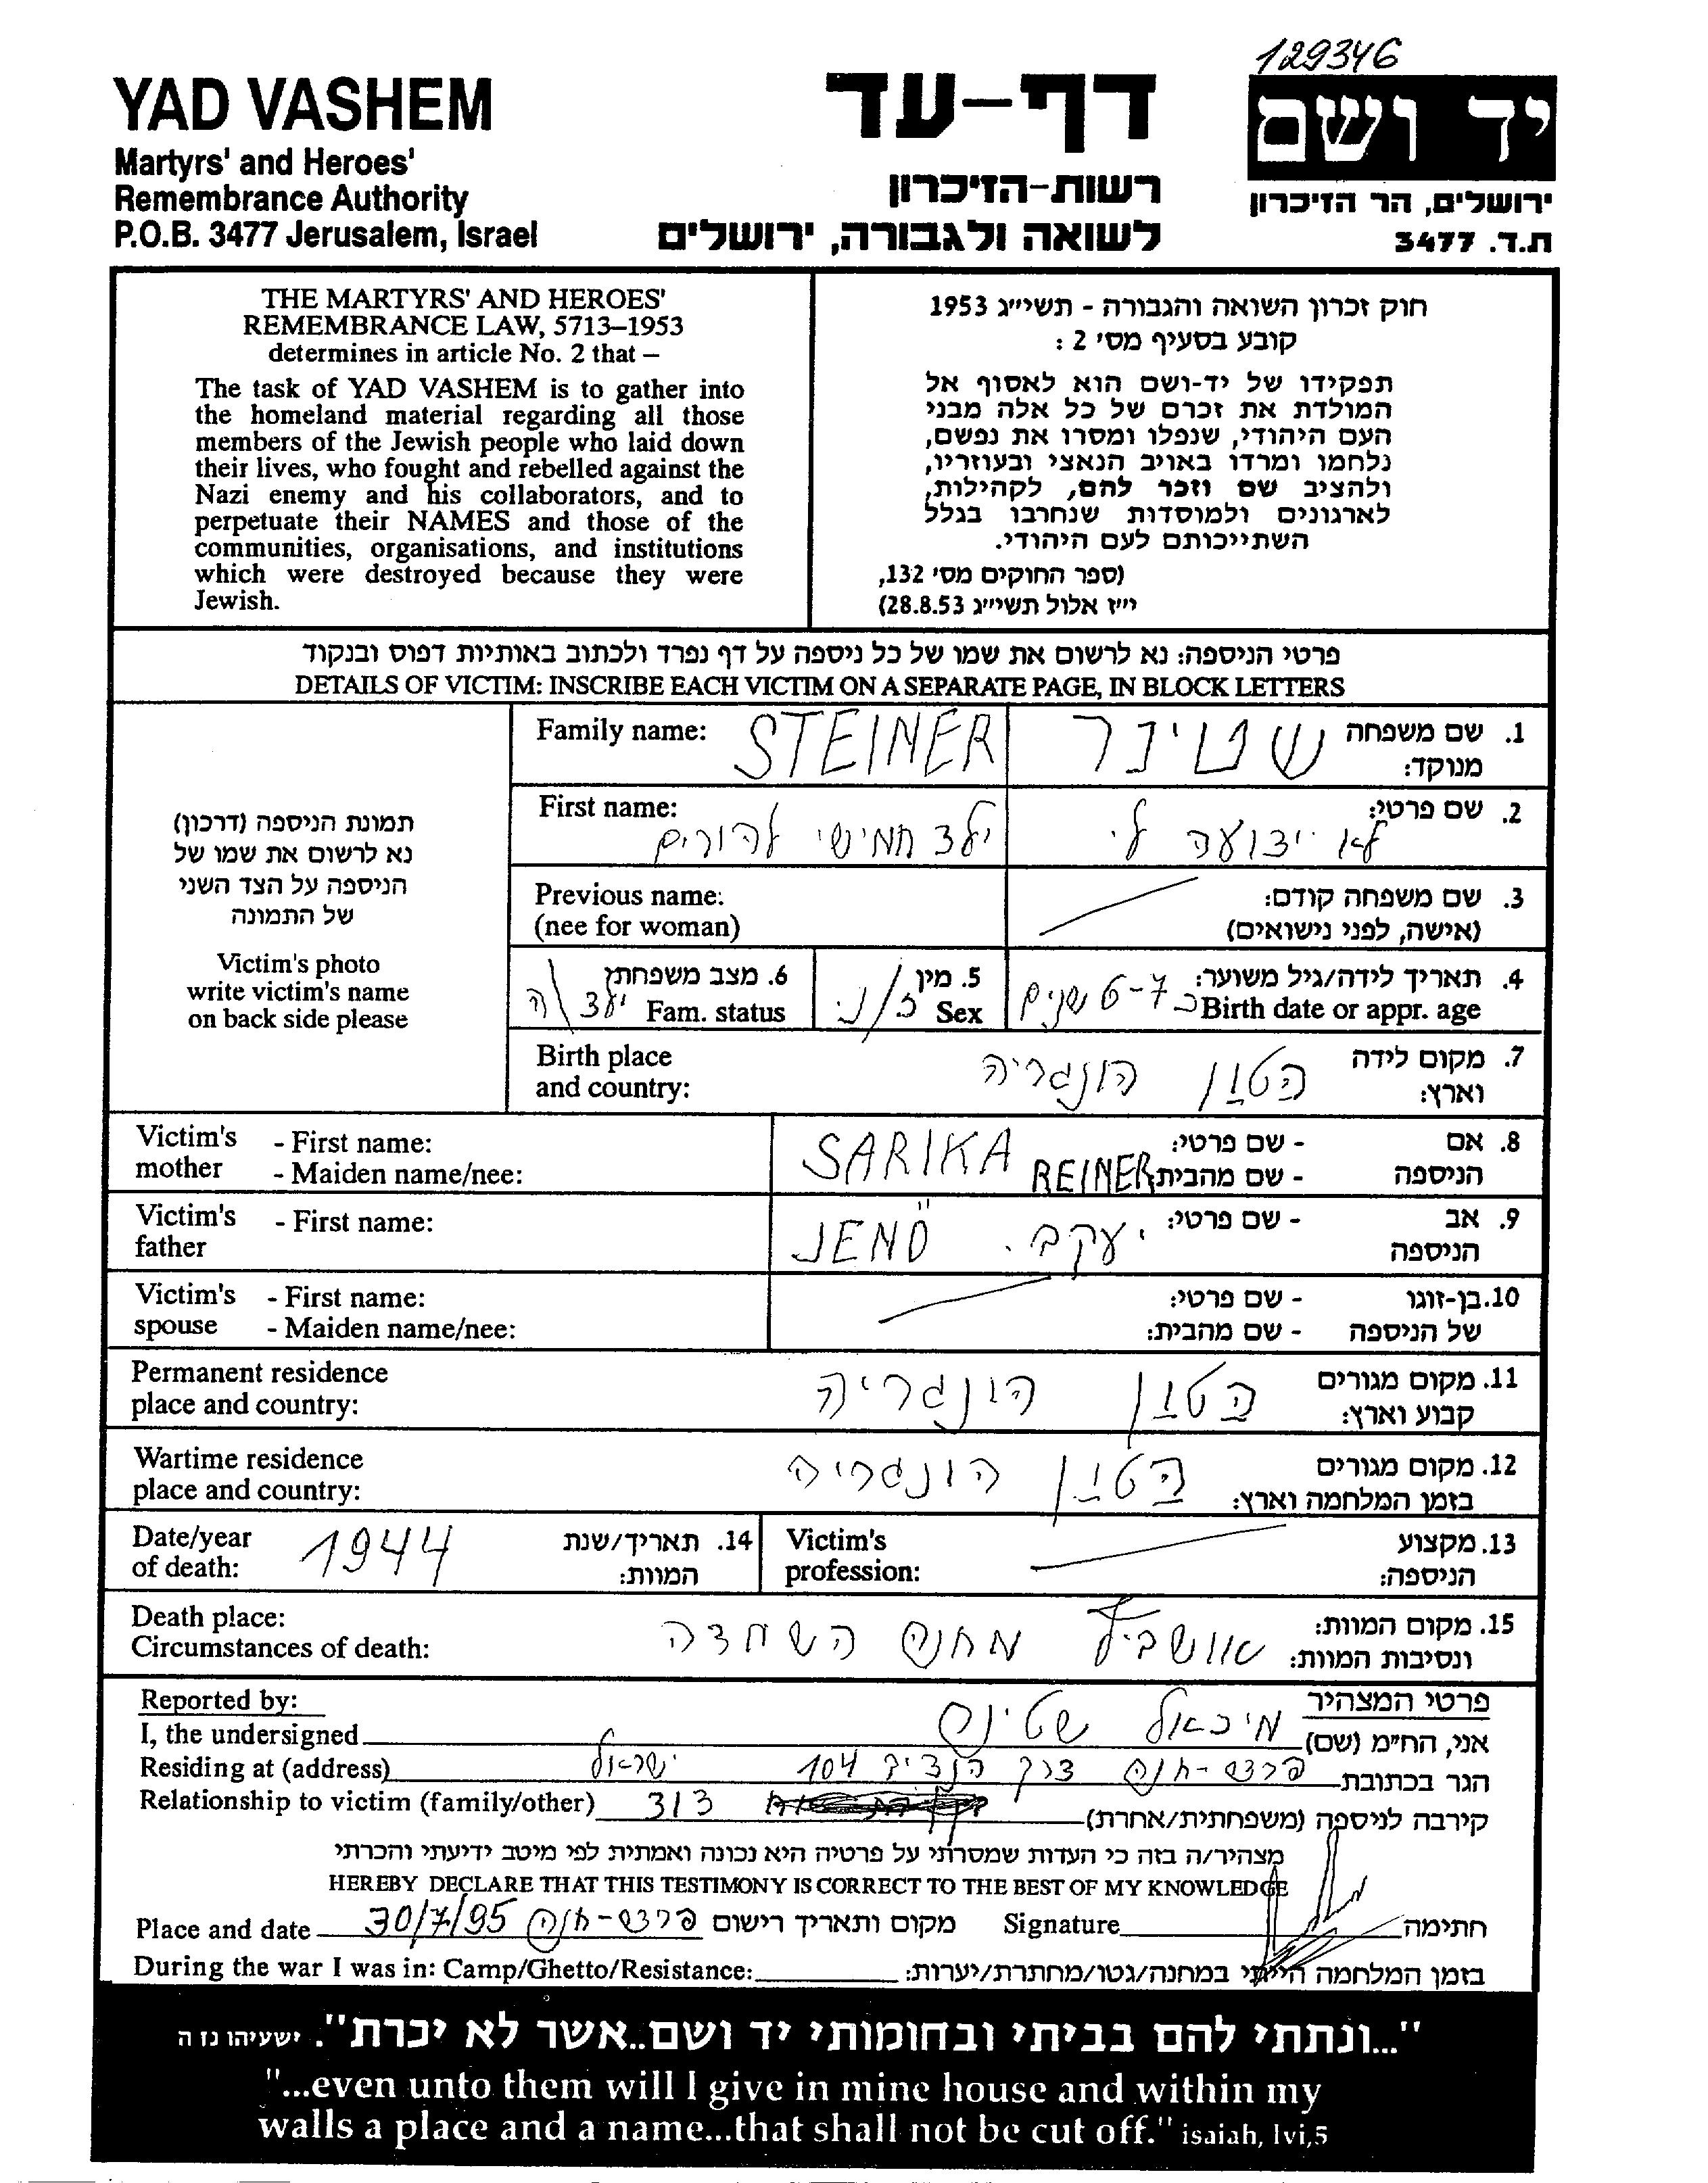 129346
YAD VASHEM
Martyrs' and Heroes'
Remembrance Authority
P.O.B. 3477 Jerusalem, Israel
דף-עד
רשות-הזיכרון
לשואה ולגבורה, ירושלים
יד ושם
ירושלים, הר הזיכרון
ת.ד. 3477
THE MARTYRS' AND HEROES'
REMEMBRANCE LAW, 5713–1953
determines in article No. 2 that –
The task of YAD VASHEM is to gather into
the homeland material regarding all those
members of the Jewish people who laid down
their lives, who fought and rebelled against the
Nazi enemy and his collaborators, and to
perpetuate their NAMES and those of the
communities, organisations, and institutions
which were destroyed because they were
Jewish.
חוק זכרון השואה והגבורה - תשי״ג 1953
קובע בסעיף מס׳ 2 :
תפקידו של יד-ושם הוא לאסוף אל
המולדת את זכרם של כל אלה מבני
העם היהודי, שנפלו ומסרו את נפשם,
נלחמו ומרדו באויב הנאצי ובעוזריו,
ולהציב שם וזכר להם, לקהילות,
לארגונים ולמוסדות שנחרבו בגלל
השתייכותם לעם היהודי.
(ספר החוקים מס׳ 132,
י״ז אלול תשי״ג 28.8.53)
פרטי הניספה: נא לרשום את שמו של כל ניספה על דף נפרד ולכתוב באותיות דפוס ובנקוד
DETAILS OF VICTIM: INSCRIBE EACH VICTIM ON A SEPARATE PAGE, IN BLOCK LETTERS
תמונת הניספה (דרכון)
נא לרשום את שמו של
הניספה על הצד השני
של התמונה
Victim's photo
write victim's name
on back side please
Family name: STEINER שטינר 1. שם משפחה
מנוקד:
First name: 2. שם פרטי:
לא ידועה לי ילד חמישי להורים
Previous name: 3. שם משפחה קודם:
(nee for woman) (אישה, לפני נישואים)
4. תאריך לידה/גיל משוער:
Birth date or appr. age כ 6-7 שנים
5. מין
Sex ז/נ
6. מצב משפחתי
Fam. status ילד\ה
Birth place 7. מקום לידה
and country: הונגריה וארץ:
Victim's - First name: SARIKA - שם פרטי: 8. אם
mother - Maiden name/nee: REINER - שם מהבית הניספה
Victim's - First name: JENŐ יעקב. - שם פרטי: 9. אב
father הניספה
Victim's - First name: - שם פרטי: 10. בן-זוגו
spouse - Maiden name/nee: - שם מהבית: של הניספה
Permanent residence 11. מקום מגורים
place and country: הונגריה קבוע וארץ:
Wartime residence 12. מקום מגורים
place and country: הונגריה בזמן המלחמה וארץ:
Date/year 1944 14. תאריך/שנת
of death: המוות:
Victim's 13. מקצוע
profession: הניספה:
Death place: 15. מקום המוות:
Circumstances of death: אושביץ מחנה השמדה ונסיבות המוות:
Reported by: פרטי המצהיר
I, the undersigned מיכאל שטינר אני, הח״מ (שם)
Residing at (address) פרדס-חנה דרך הנדיב 104 ישראל הגר בכתובת
Relationship to victim (family/other) דוד קירבה לניספה (משפחתית/אחרת)
מצהיר/ה בזה כי העדות שמסרתי על פרטיה היא נכונה ואמתית לפי מיטב ידיעתי והכרתי
HEREBY DECLARE THAT THIS TESTIMONY IS CORRECT TO THE BEST OF MY KNOWLEDGE
Place and date 30/7/95 פרדס-חנה מקום ותאריך רישום Signature חתימה
During the war I was in: Camp/Ghetto/Resistance: בזמן המלחמה הייתי במחנה/גטו/מחתרת/יערות:
"...ונתתי להם בביתי ובחומותי יד ושם..אשר לא יכרת". ישעיהו נז ה
"...even unto them will I give in mine house and within my
walls a place and a name...that shall not be cut off." isaiah, lvi,5